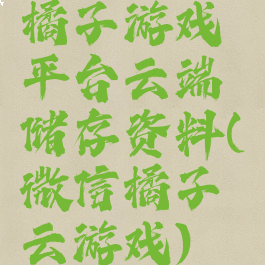 橘子游戏
平台云端
储存资料(
微信橘子
云游戏)